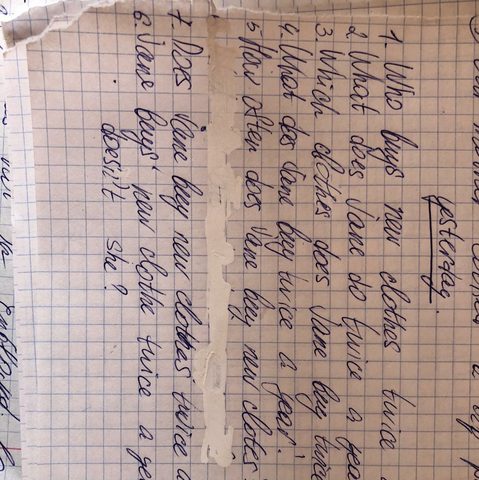 yesterday.
1. Who buys new clothes twice a
2. What does Jane do twice a yea
3 Which clothes does Jane buy twice
4. What des Jane buy twice a year?
5 How often does Jane buy new clotes?
7. Does Jane buy new clothes twice a
6. Jane buys new clothe twice a yea
doesn't she?